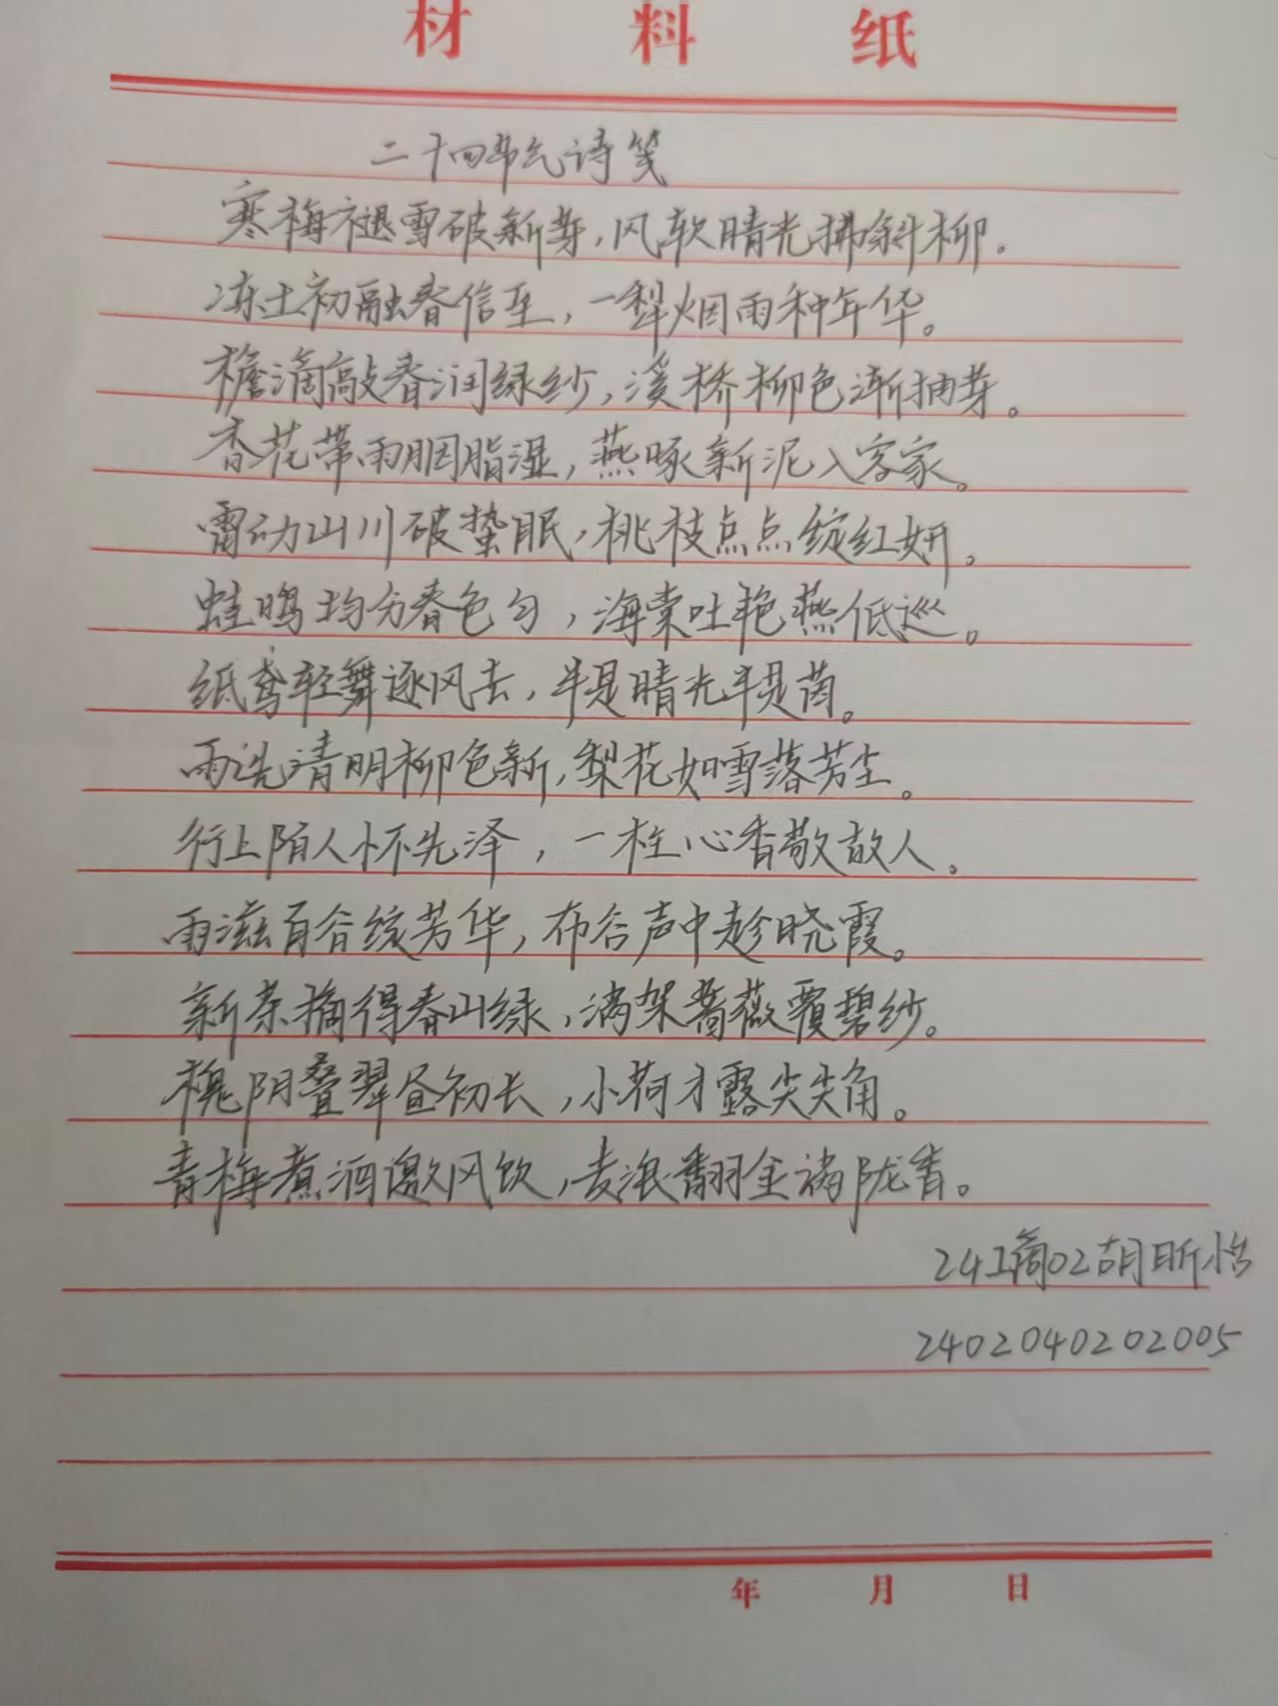 材料纸
二十四节气诗笺
寒梅褪雪破新芽，风软晴光拂斜柳。
冻土初融春信至，一犁烟雨种年华。
檐滴敲春润绿纱，溪桥柳色渐抽芽。
杏花带雨胭脂湿，燕啄新泥入客家。
雷动山川破蛰眠，桃枝点点绽红妍。
蛙鸣均分春色匀，海棠吐艳燕低巡。
纸鸢轻舞逐风去，半是晴光半是茵。
雨洗清明柳色新，梨花如雪落芳尘。
行上陌人怀先泽，一柱心香敬故人。
雨滋百谷绽芳华，布谷声中趁晓霞。
新茶摘得春山绿，满架蔷薇覆碧纱。
槐阴叠翠昼初长，小荷才露尖尖角。
青梅煮酒邀风饮，麦浪翻金满陇香。
24工商02胡昕怡
2402040202005
年 月 日